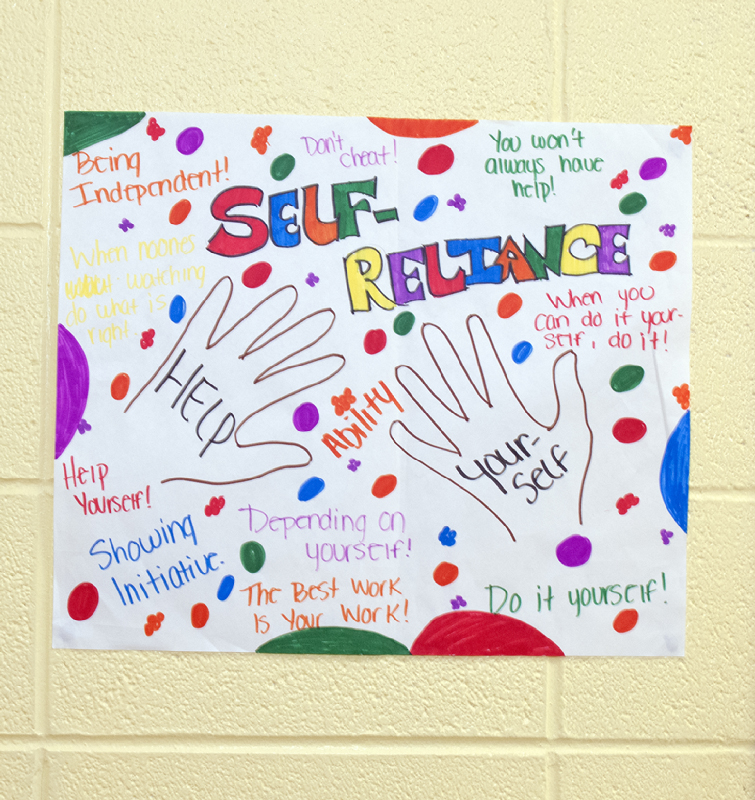 Being
Independent!
Don't
cheat!
You won't
always have
help!
SELF-
RELIANCE
When noones
watching
do what is
right.
When you
can do it your-
self, do it!
HELP
Ability
your-
self
Help
Yourself!
Showing
Initiative.
Depending on
yourself!
The Best Work
Is Your Work!
Do it yourself!